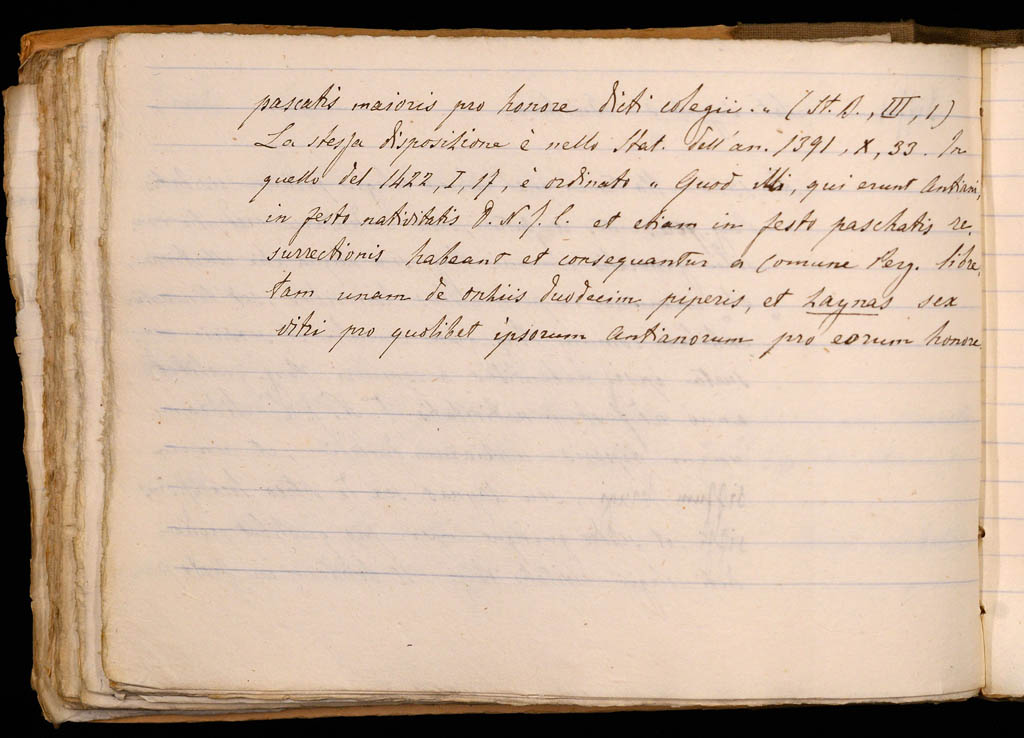 pascatis maioris pro honore dicti colegii. „ (St. B., III, 1)
La stessa disposizione è nello Stat. dell'an. 1391, X, 33. In
quello del 1422, I, 17, è ordinato „ Quod illi, qui erunt Antiani,
in festo nativitatis D. N. J. C. et etiam in festo paschatis re„
surrectionis habeant et consequantur a Comune Perg. libre„
tam unam de onhiis duodecim piperis, et zaynas sex
vitri pro quolibet ipsorum Antianorum pro eorum honore